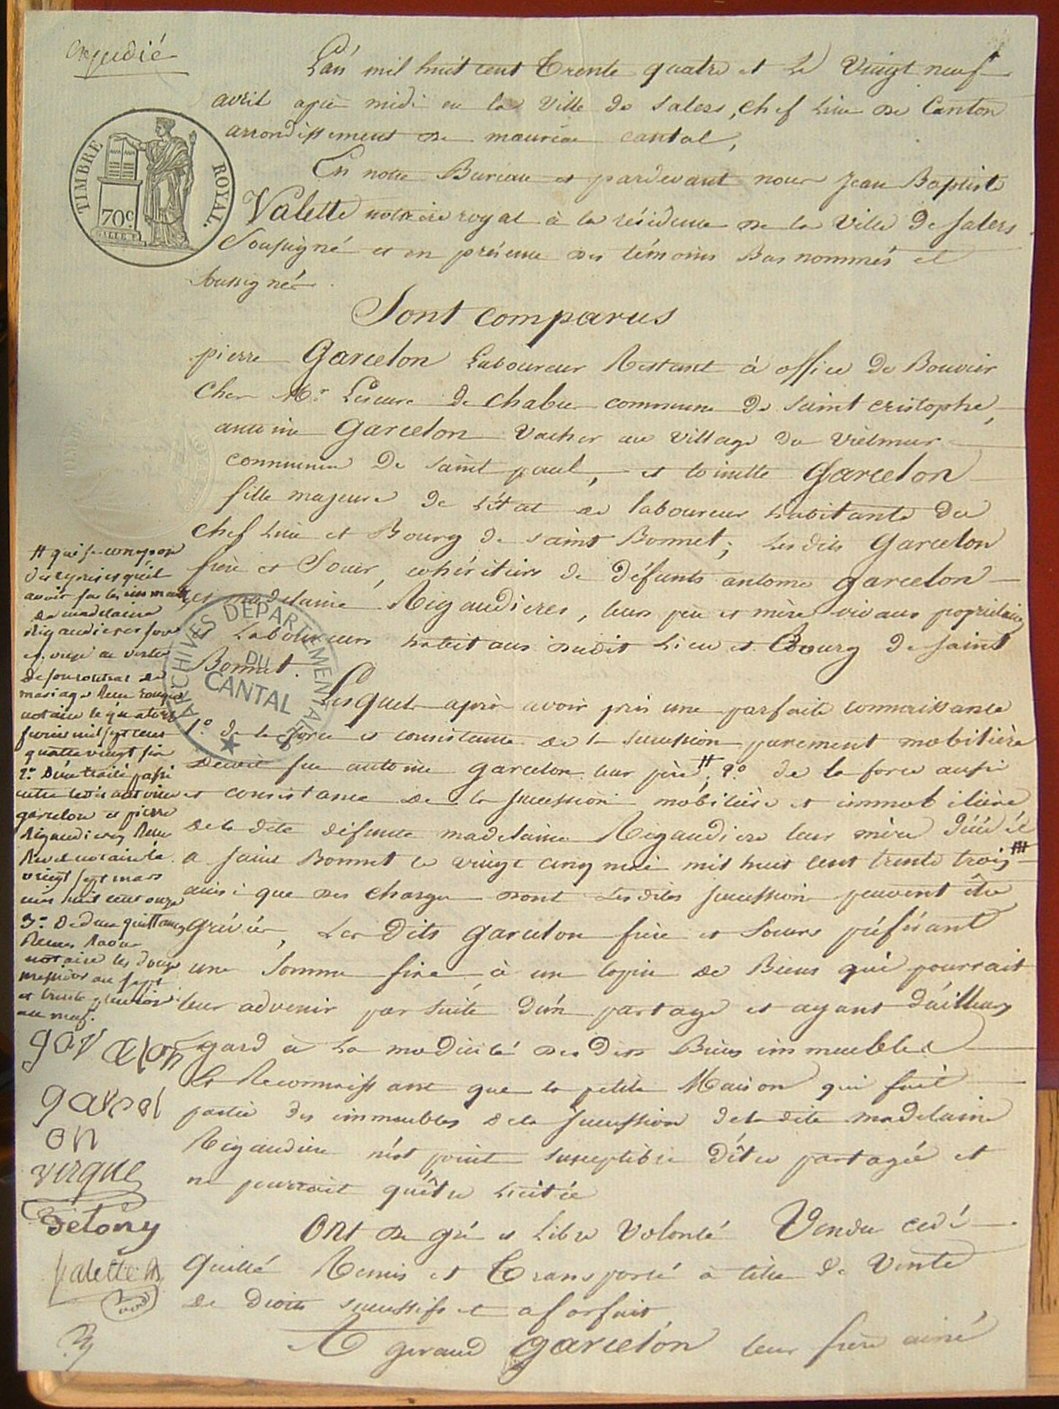 Expédié
TIMBRE ROYAL.
70c
L'an mil huit cent trente quatre et le vingt neuf
avril après midi en la ville de Salers, chef lieu de Canton
arrondissement de mauriac cantal,
En notre Bureau et pardevant nous Jean Baptiste
Valette notaire royal à la résidence de la ville de Salers
Soussigné et en présence des témoins Bas nommés et
soussignés.
Sont comparus
pierre Garcelon Laboureur Restant à office de Bouvier
chez Mr. Lescure de chabu commune de Saint cristophe,
antoine Garcelon Vacher au village du Vielmur
commune de Saint paul, et toinette Garcelon
fille majeure de l'état de laboureur habitante du
chef lieu et Bourg de Saint Bonnet; Lesdits Garcelon
frere et Soeur, cohéritiers de défunts antoine garcelon
et madelaine Rigaudieres, leurs pere et mère vivans propriétaires
et Laboureurs habitans dudit Lieu et Bourg de Saint
Bonnet.
ARCHIVES DEPARTEMENTALES
DU
CANTAL
Lesquels après avoir pris une parfaite connaissance
1.o de la force et consistance de la succession purement mobilière
de feu antoine garcelon leur père #; 2.o de la force aussi
et consistance de la succession mobilière et immobilière
de la dite défunte madelaine Rigaudiere leur mère décédée
a saint Bonnet le vingt cinq mai mil huit cent trente trois #
ainsi que des charges dont lesdites succession peuvent être
grévées, Les dits garcelon frère et Soeurs préférant
une Somme fixe à un lopin de Biens qui pourrait
leur advenir par suite d'un partage et ayant d'ailleurs
égard à la modicité des dits Biens immeubles
Et Reconnaissant que la petite Maison qui fait
partie des immeubles de la succession de la dite madelaine
Rigaudiere n'est point susceptible d'être partagée et
ne pourrait qu'être licitée
Ont de gré et Libre Volonté Vendu cédé
quitté Remis et Transporté à titre de Vente
de droits successifs et a forfait
A geraud garcelon leur frère ainé
# qui se compose
des reprises qu'il
avoit sur les immeubles
de madelaine
Rigaudieres sa
en vertu
de son contrat de
mariage Reçu
notaire le quatorze
fevrier mil sept cent
quatre vingt six
2.o D'un traité passé
entre ledit antoine
garcelon et pierre
Rigaudieres Reçu
notaire le
vingt sept mars
mil huit cent onze
3.o De deux quittances
Reçues Raoux
notaire les douze
messidor an sept
et trente
an neuf.
garcelon
garcel
on
virgne
Delony
Valette